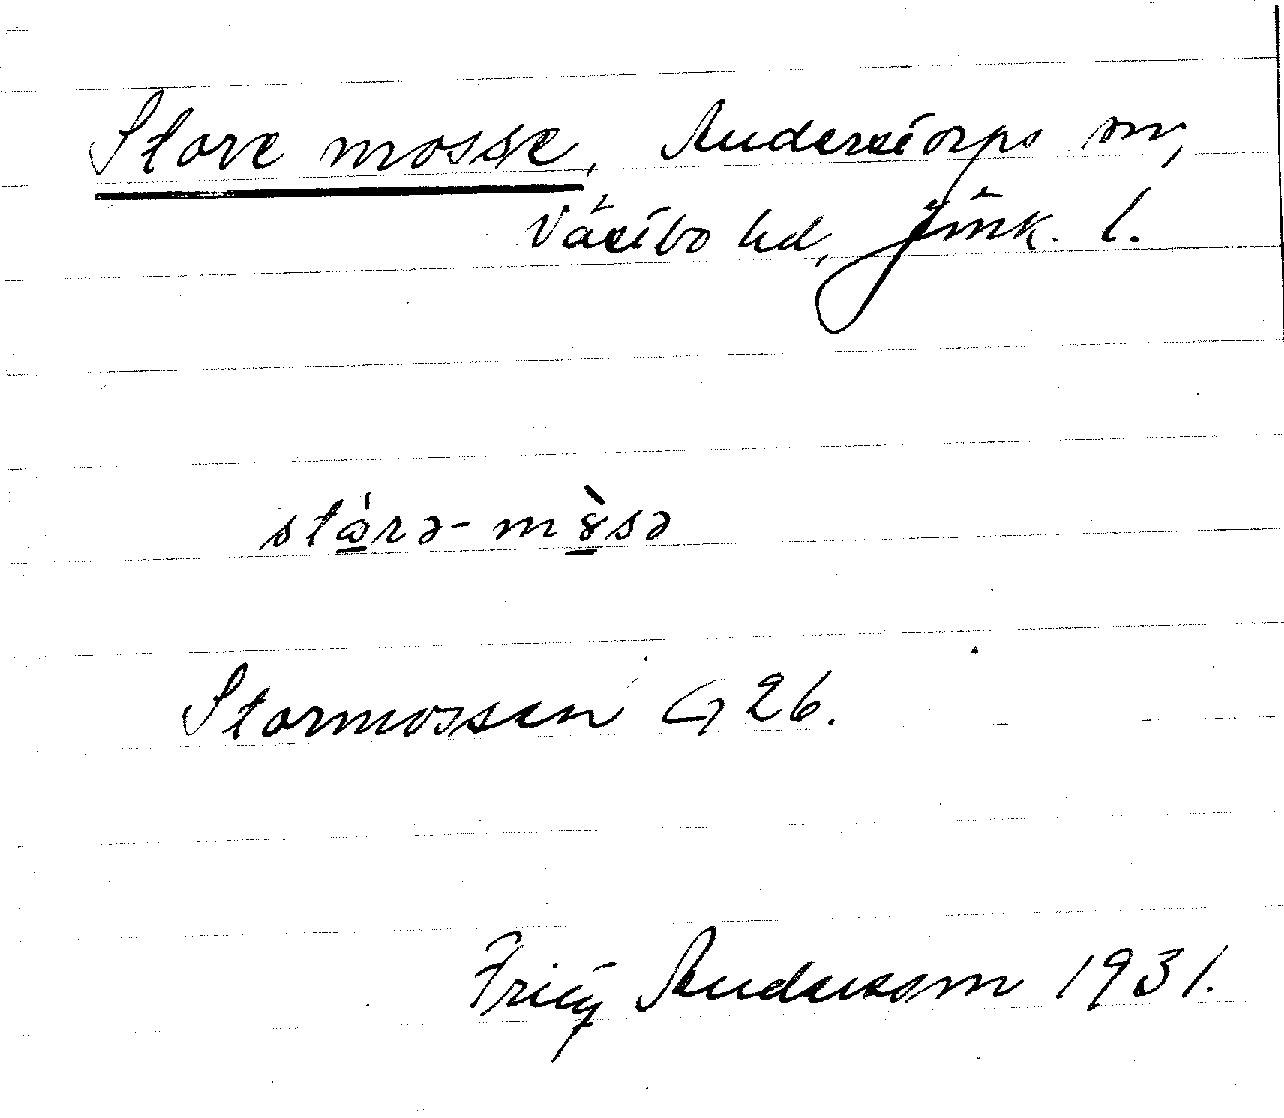 Store mosse, Anderstorps sn,
Västbo hd, Jönk. l.
stǻ̱rə-mɤ̱̀sə
Stormossen G 26.
Fritz Andersson 1931.